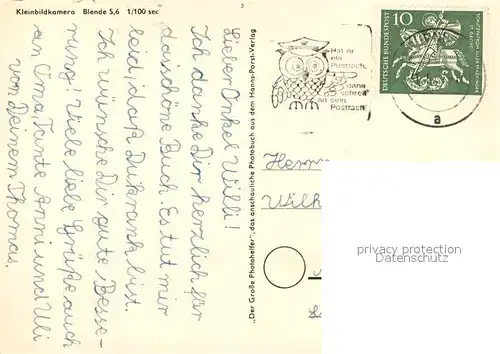 Kleinbildkamera Blende 5,6 1/100 sec
Lieber Onkel Willi!
Ich danke Dir herzlich für
das schöne Buch. Es tut mir
leid, daß Du krank bist.
Ich wünsche Dir gute Besse-
rung! Viele liebe Grüße auch
an Oma, Tante Anni und Uli
von Deinem Thomas.
„Der Große Photohelfer", das anschauliche Photobuch aus dem Hanns-Porst-Verlag
Hat er
ein
Postfach,
dann
schreib
an sein
Postfach
10
DEUTSCHE BUNDESPOST
a
Herrn
privacy protection
www.oldthing.de